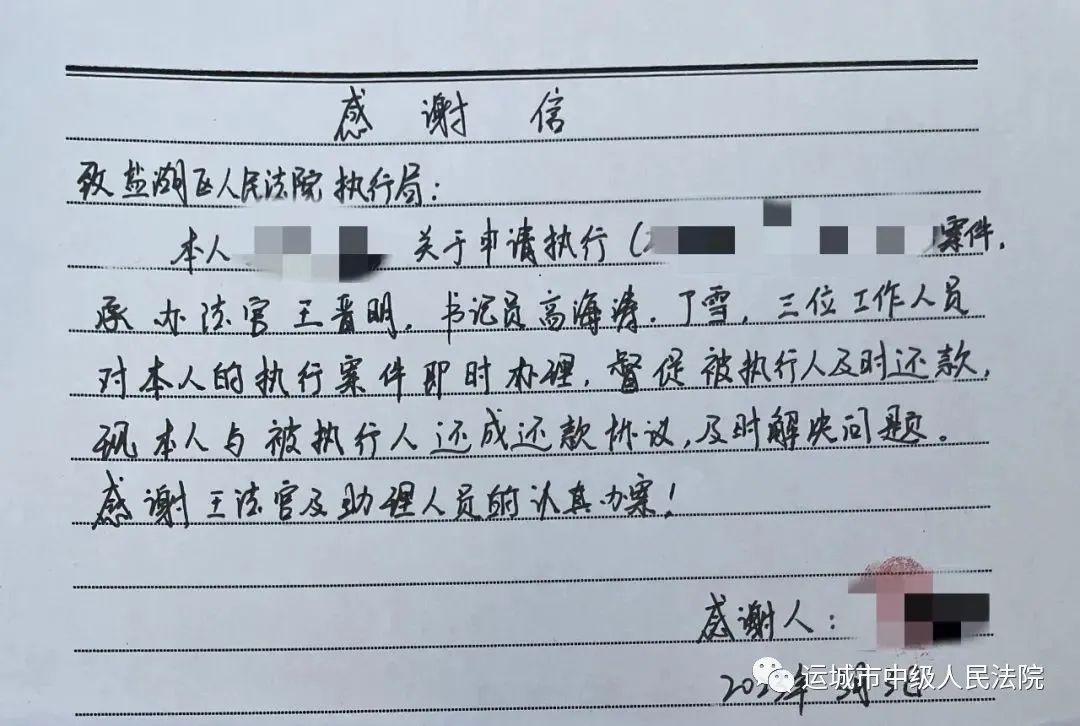 感谢信
致盐湖区人民法院执行局：
本人 关于申请执行（ ）案件，
承办法官王晋明，书记员高海涛．丁雪，三位工作人员
对本人的执行案件即时办理，督促被执行人及时还款，
现本人与被执行人达成还款协议，及时解决问题。
感谢王法官及助理人员的认真办案！
感谢人：
运城市中级人民法院